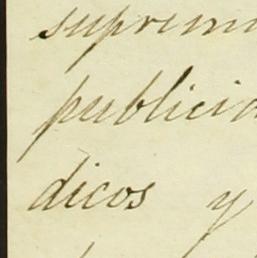 suprem
publicid
dicos y